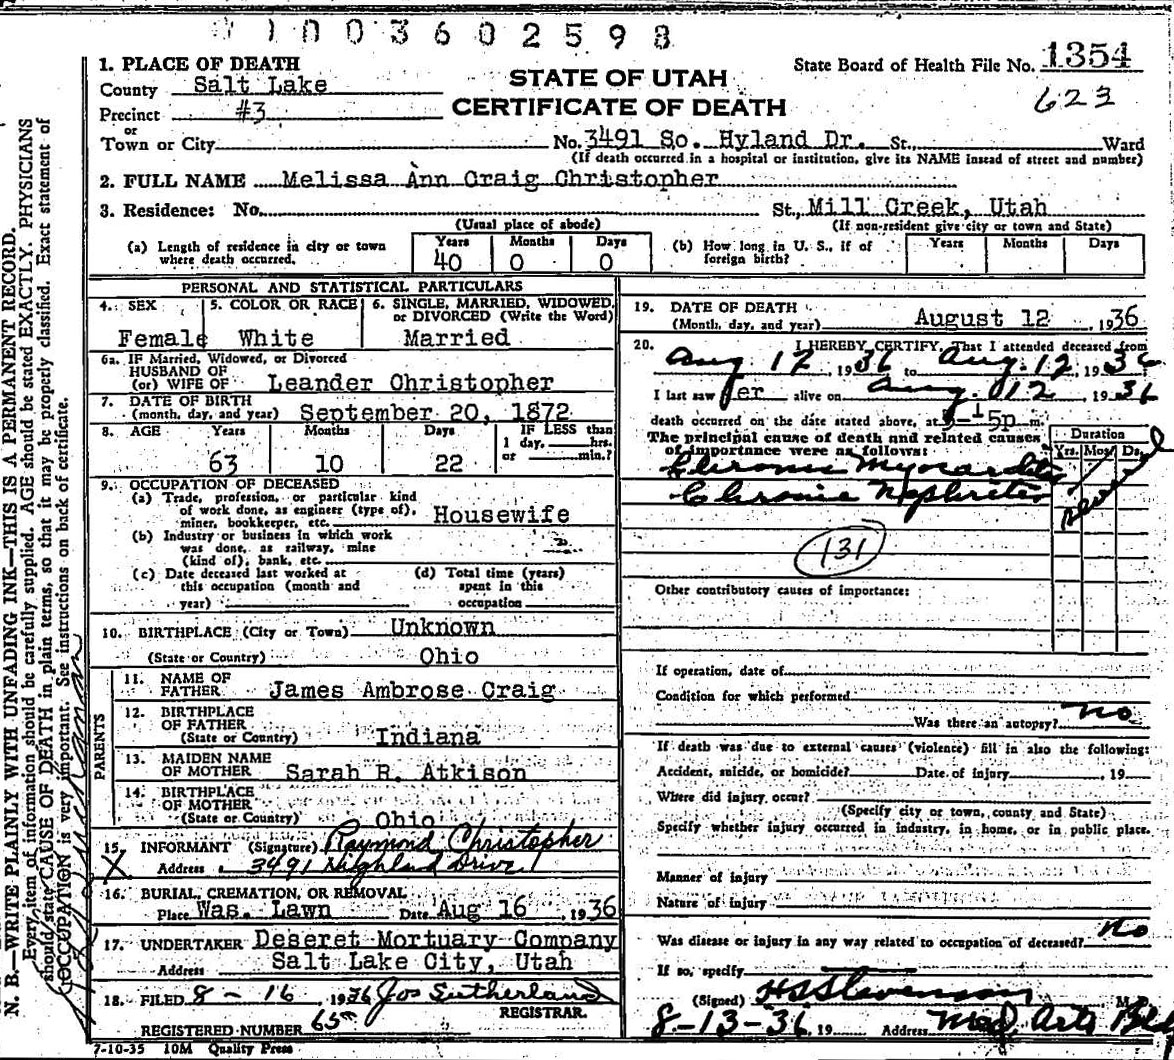 1003602598
1. PLACE OF DEATH
County Salt Lake
Precinct #3
or
Town or City
STATE OF UTAH
CERTIFICATE OF DEATH
State Board of Health File No. 1354
623
No. 3491 So. Hyland Dr. St., Ward
(If death occurred in a hospital or institution, give its NAME insead of street and number)
2. FULL NAME Melissa Ann Craig Christopher
3. Residence: No. St., Mill Creek, Utah
(Usual place of abode) (If non-resident give city or town and State)
(a) Length of residence in city or town
where death occurred.
Years Months Days
40 0 0
(b) How long in U. S., if of
foreign birth?
Years Months Days
PERSONAL AND STATISTICAL PARTICULARS
4. SEX 5. COLOR OR RACE 6. SINGLE, MARRIED, WIDOWED,
or DIVORCED (Write the Word)
Female White Married
6a. IF Married, Widowed, or Divorced
HUSBAND OF
(or) WIFE OF Leander Christopher
7. DATE OF BIRTH
(month, day, and year) September 20, 1872
8. AGE Years Months Days IF LESS than
1 day, hrs.
or min.?
63 10 22
9. OCCUPATION OF DECEASED
(a) Trade, profession, or particular kind
of work done, as engineer (type of),
miner, bookkeeper, etc. Housewife
(b) Industry or business in which work
was done, as railway, mine
(kind of), bank, etc.
(c) Date deceased last worked at
this occupation (month and
year)
(d) Total time (years)
spent in this
occupation
10. BIRTHPLACE (City or Town) Unknown
(State or Country) Ohio
PARENTS
11. NAME OF
FATHER James Ambrose Craig
12. BIRTHPLACE
OF FATHER
(State or Country) Indiana
13. MAIDEN NAME
OF MOTHER Sarah R. Atkison
14. BIRTHPLACE
OF MOTHER
(State or Country) Ohio
15. INFORMANT (Signature) Raymond Christopher
X Address 3491 Highland Drive
16. BURIAL, CREMATION, OR REMOVAL
Place Was. Lawn Date Aug 16, 1936
17. UNDERTAKER Deseret Mortuary Company
Address Salt Lake City, Utah
18. FILED 8-16, 1936 Jos Sutherland
REGISTRAR.
REGISTERED NUMBER
7-10-35 10M Quality Press
19. DATE OF DEATH
(Month, day, and year) August 12, 1936
20. I HEREBY CERTIFY, That I attended deceased from
Aug 12 1936 to Aug. 12, 1936
I last saw her alive on Aug. 12, 1936
death occurred on the date stated above, at 5p m.
The principal cause of death and related causes
of importance were as follows:
Duration
Yrs. Mos. Ds.
Chronic Myocarditis
Chronic Nephritis
several
131
Other contributory causes of importance:
If operation, date of
Condition for which performed
Was there an autopsy? no
If death was due to external causes (violence) fill in also the following:
Accident, suicide, or homicide? Date of injury, 19
Where did injury occur?
(Specify city or town, county and State)
Specify whether injury occurred in industry, in home, or in public place.
Manner of injury
Nature of injury
Was disease or injury in any way related to occupation of deceased? No
If so, specify
(Signed) H S Stevenson M. D.
8-13-36 19 Address Med Arts Bldg
N. B.—WRITE PLAINLY WITH UNFADING INK—THIS IS A PERMANENT RECORD.
Every item of information should be carefully supplied. AGE should be stated EXACTLY. PHYSICIANS
should state CAUSE OF DEATH in plain terms, so that it may be properly classified. Exact statement of
OCCUPATION is very important. See instructions on back of certificate.